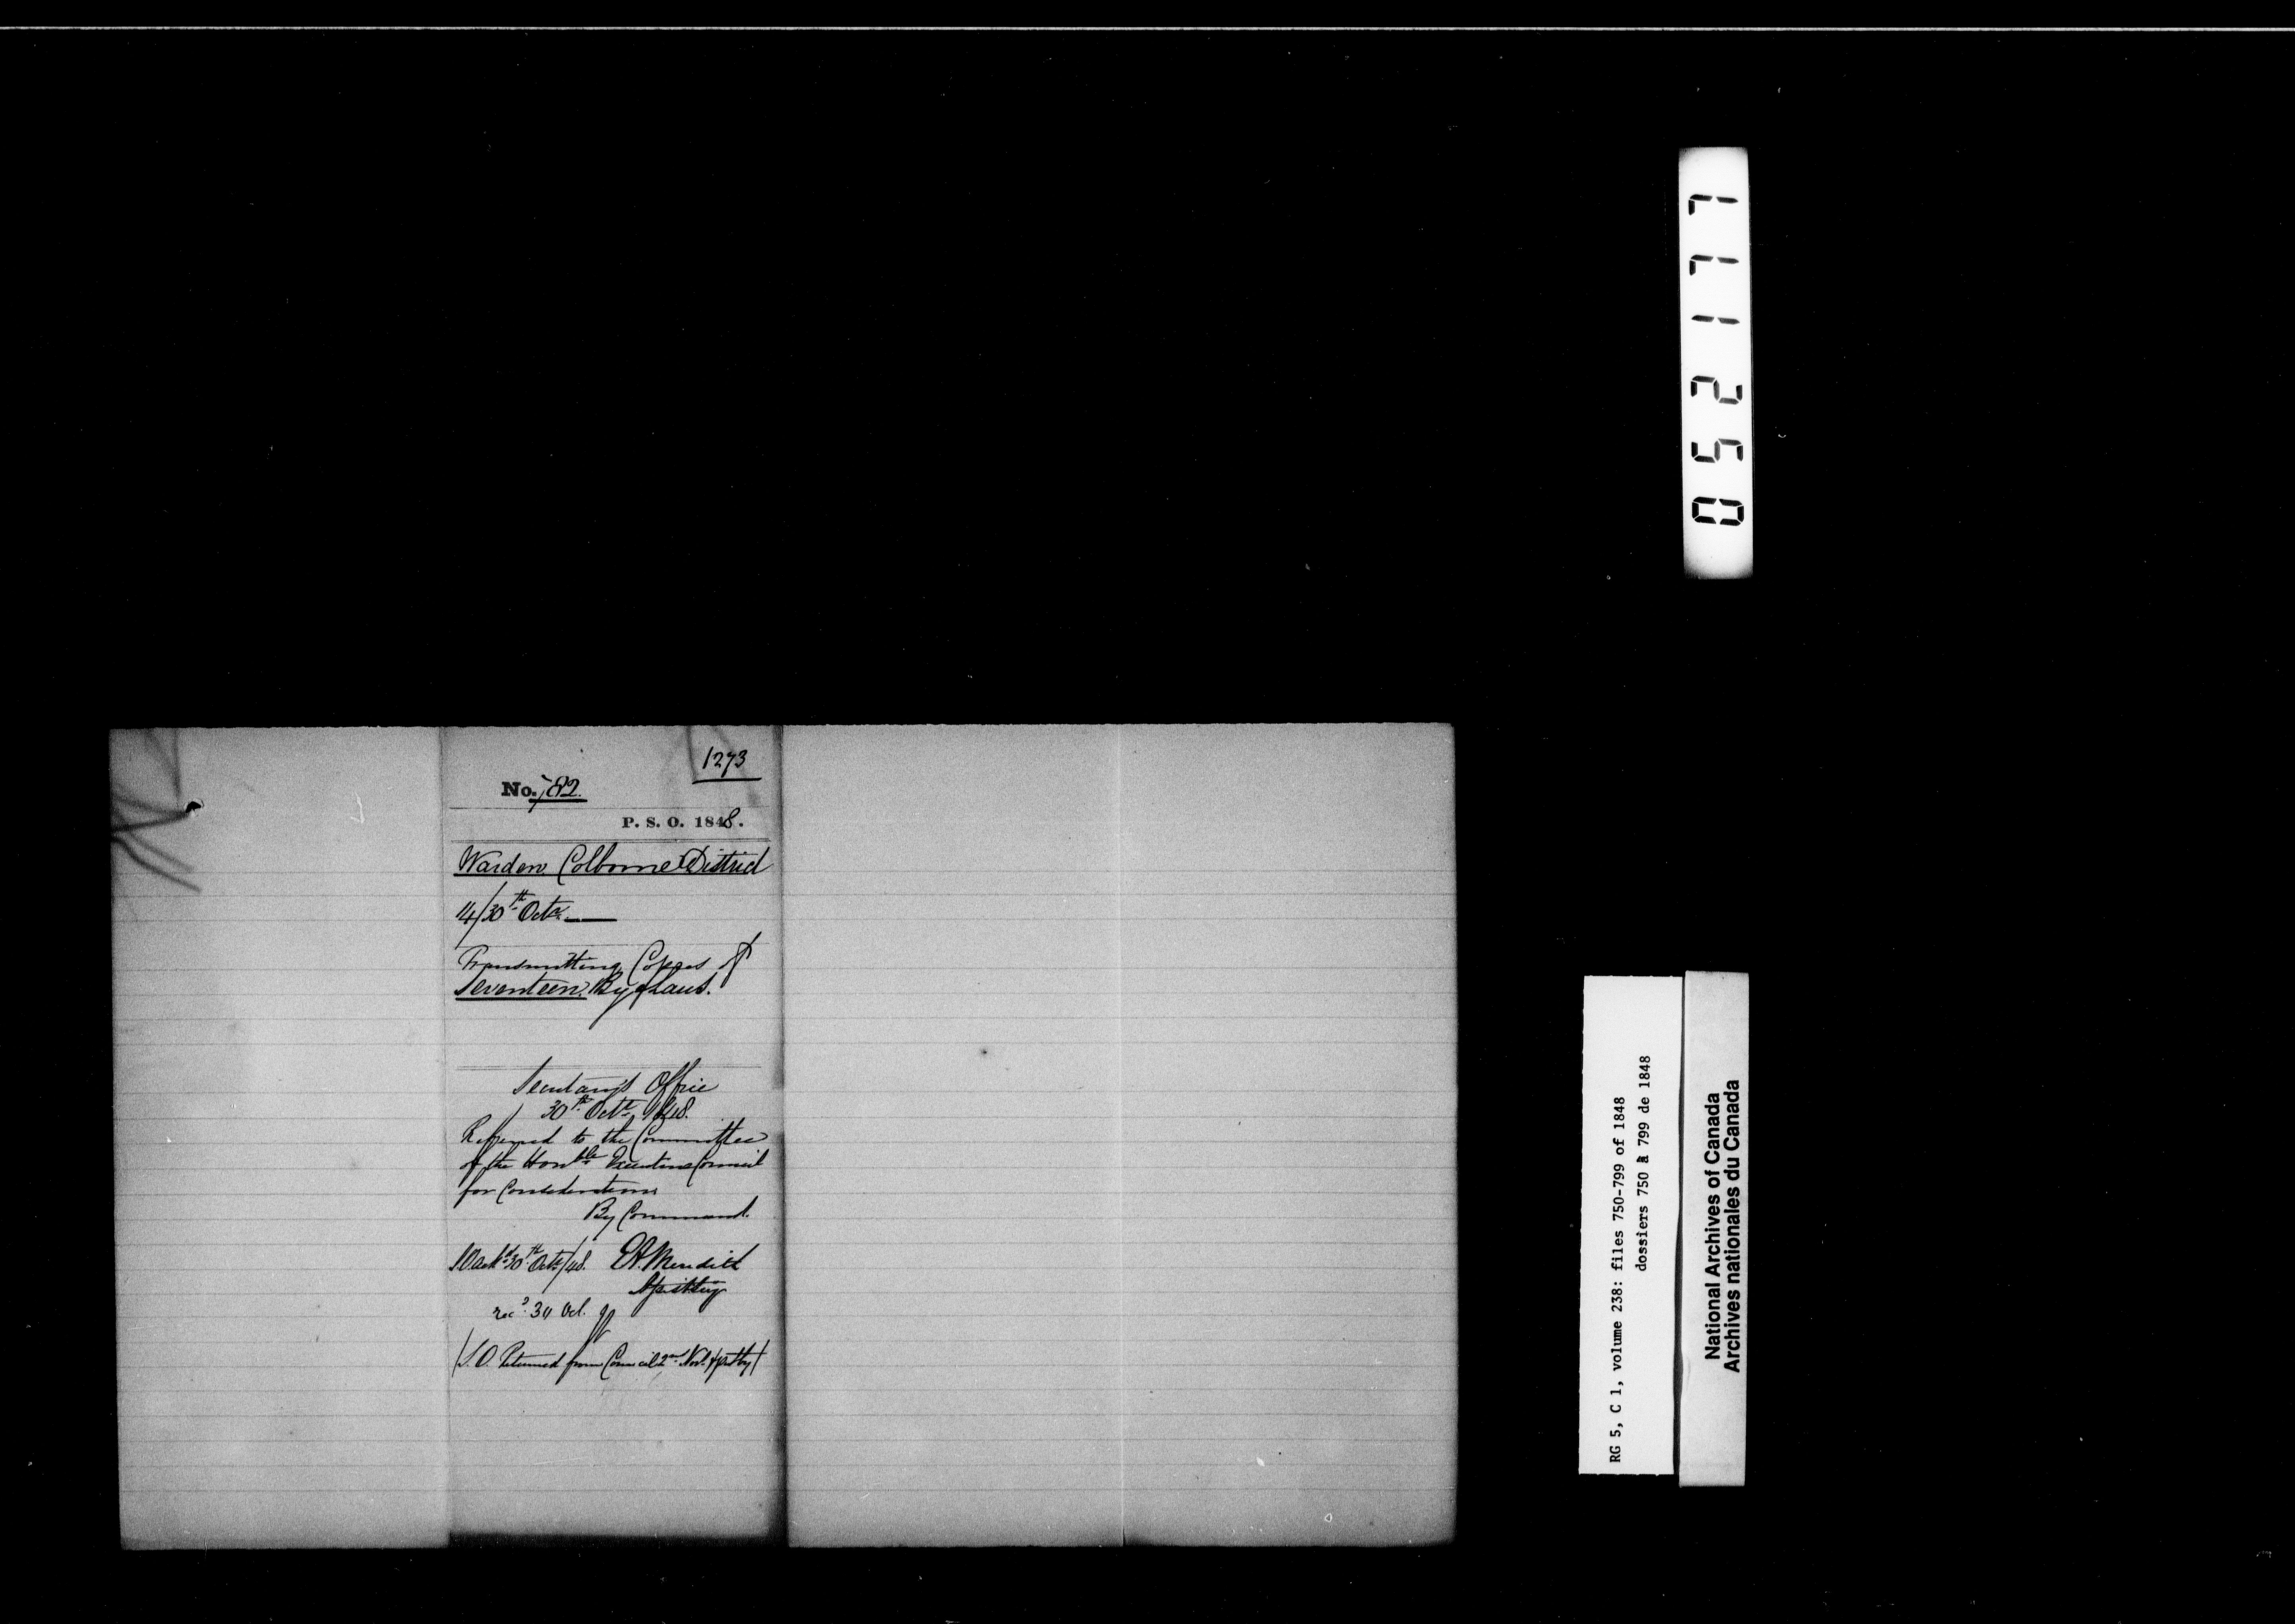 1273
No. 782.
P. S. O. 1848.
Warden Colborne District
14/30th Octr.
Transmitting Copies of
Seventeen By Laws.
Secretary's Office
30th Octr. 1848.
Referred to the Committee
of the Honble Executive Council
for Consideration
By Command.
30th Octr/48. E A Meredith
Asst Secy
recd. 30 Oct.
Returned from Council 2nd Novr.
052177
RG 5, C 1, volume 238: files 750-799 of 1848
dossiers 750 à 799 de 1848
National Archives of Canada
Archives nationales du Canada